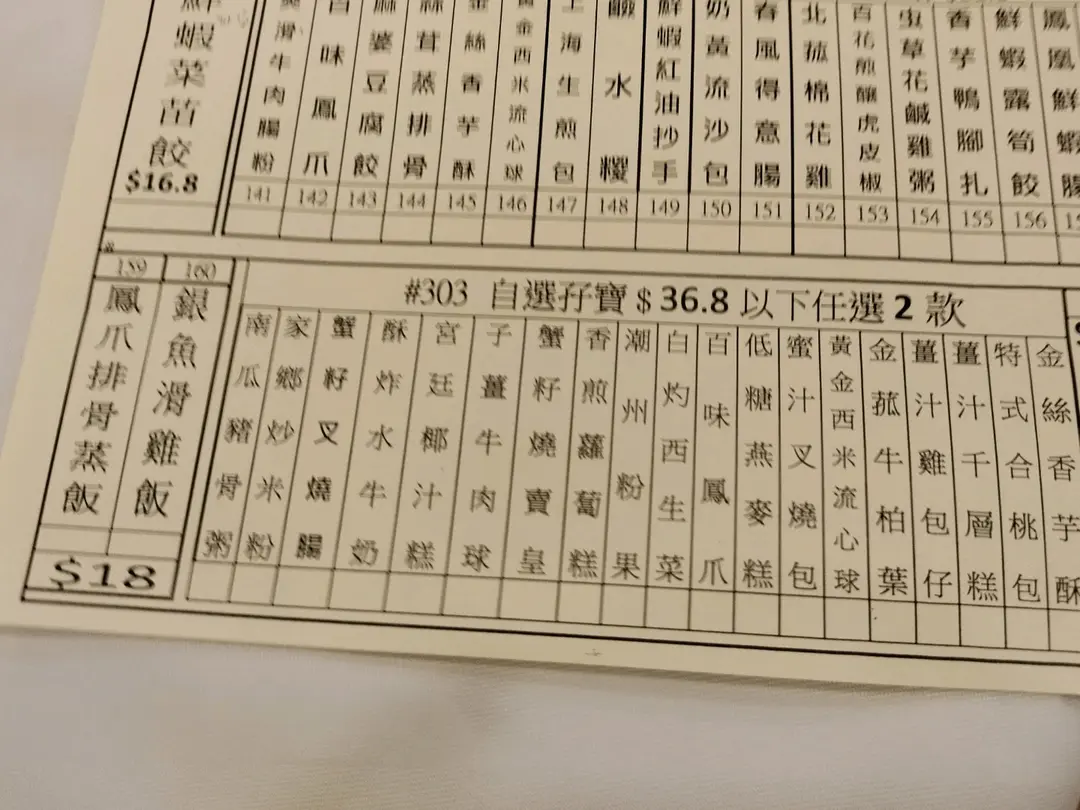 蝦菜苗餃
$16.8
滑牛肉腸粉
141
百味鳳爪
142
麻婆豆腐餃
143
茸蒸排骨
144
金絲香芋酥
145
黃金西米流心球
146
上海生煎包
147
鹹水糉
148
鮮蝦紅油抄手
149
奶黃流沙包
150
春風得意腸
151
北菰棉花雞
152
百花煎釀虎皮椒
153
虫草花鹹雞粥
154
香芋鴨腳扎
155
鮮蝦露筍餃
156
鳳凰鮮蝦腸
159
鳳爪排骨蒸飯
160
銀魚滑雞飯
$18
#303 自選孖寶 $ 36.8 以下任選 2 款
南瓜豬骨粥
家鄉炒米粉
蟹籽叉燒腸
酥炸水牛奶
宮廷椰汁糕
子薑牛肉球
蟹籽燒賣皇
香煎蘿蔔糕
潮州粉果
白灼西生菜
百味鳳爪
低糖燕麥糕
蜜汁叉燒包
黃金西米流心球
金菰牛柏葉
薑汁雞包仔
薑汁千層糕
特式合桃包
金絲香芋酥